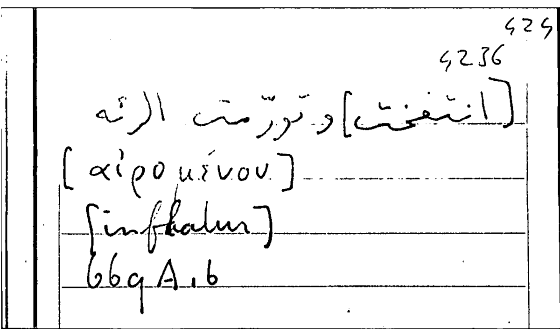 424
4236
[انتفخت] وتورّمت الرئه
[αἰρομένου]
[inflatur]
66g A.6